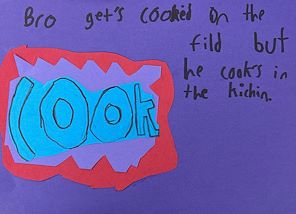 Bro get's cooked on the
fild but
he cooks in
the kichin.
COOK